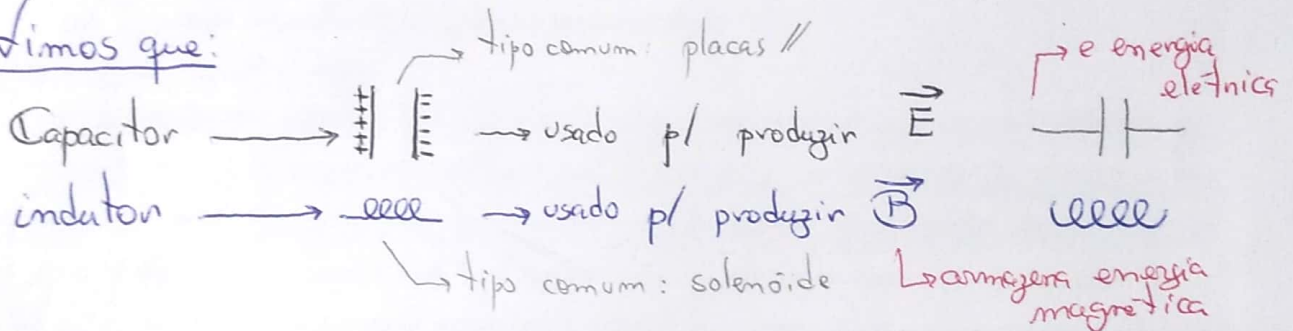 vimos que:
tipo comum: placas //
e energia
elétrica
Capacitor → usado p/ produzir E
indutor → usado p/ produzir B
tipo comum: solenóide
armazena energia
magnética